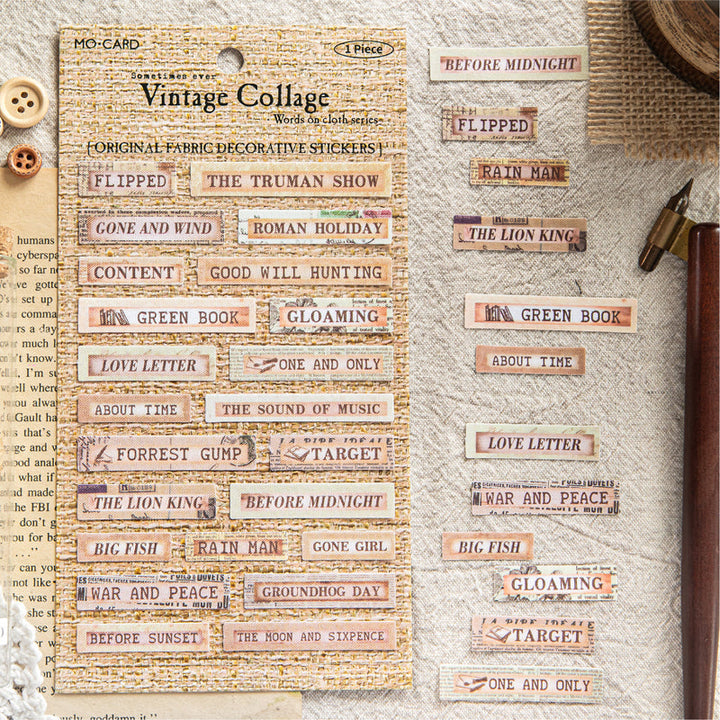 MO·CARD
1 Piece
Sometimes ever
Vintage Collage
Words on cloth series
[ORIGINAL FABRIC DECORATIVE STICKERS]
FLIPPED
THE TRUMAN SHOW
GONE AND WIND
ROMAN HOLIDAY
CONTENT
GOOD WILL HUNTING
GREEN BOOK
GLOAMING
LOVE LETTER
ONE AND ONLY
ABOUT TIME
THE SOUND OF MUSIC
FORREST GUMP
LA PIPE IDEALE
TARGET
THE LION KING
BEFORE MIDNIGHT
BIG FISH
RAIN MAN
GONE GIRL
WAR AND PEACE
GROUNDHOG DAY
BEFORE SUNSET
THE MOON AND SIXPENCE
BEFORE MIDNIGHT
FLIPPED
RAIN MAN
THE LION KING
GREEN BOOK
ABOUT TIME
LOVE LETTER
WAR AND PEACE
BIG FISH
GLOAMING
TARGET
ONE AND ONLY
humans
cyberspa
so far ne
gotten
set up
a day
much l
't know.
I'm su
well where
you alway
Gault ha
that's
and w
mood anal
what if
had made
the FBI
don't g
you for ba
..."
can yo
not like
she st
usly, goddamn it."